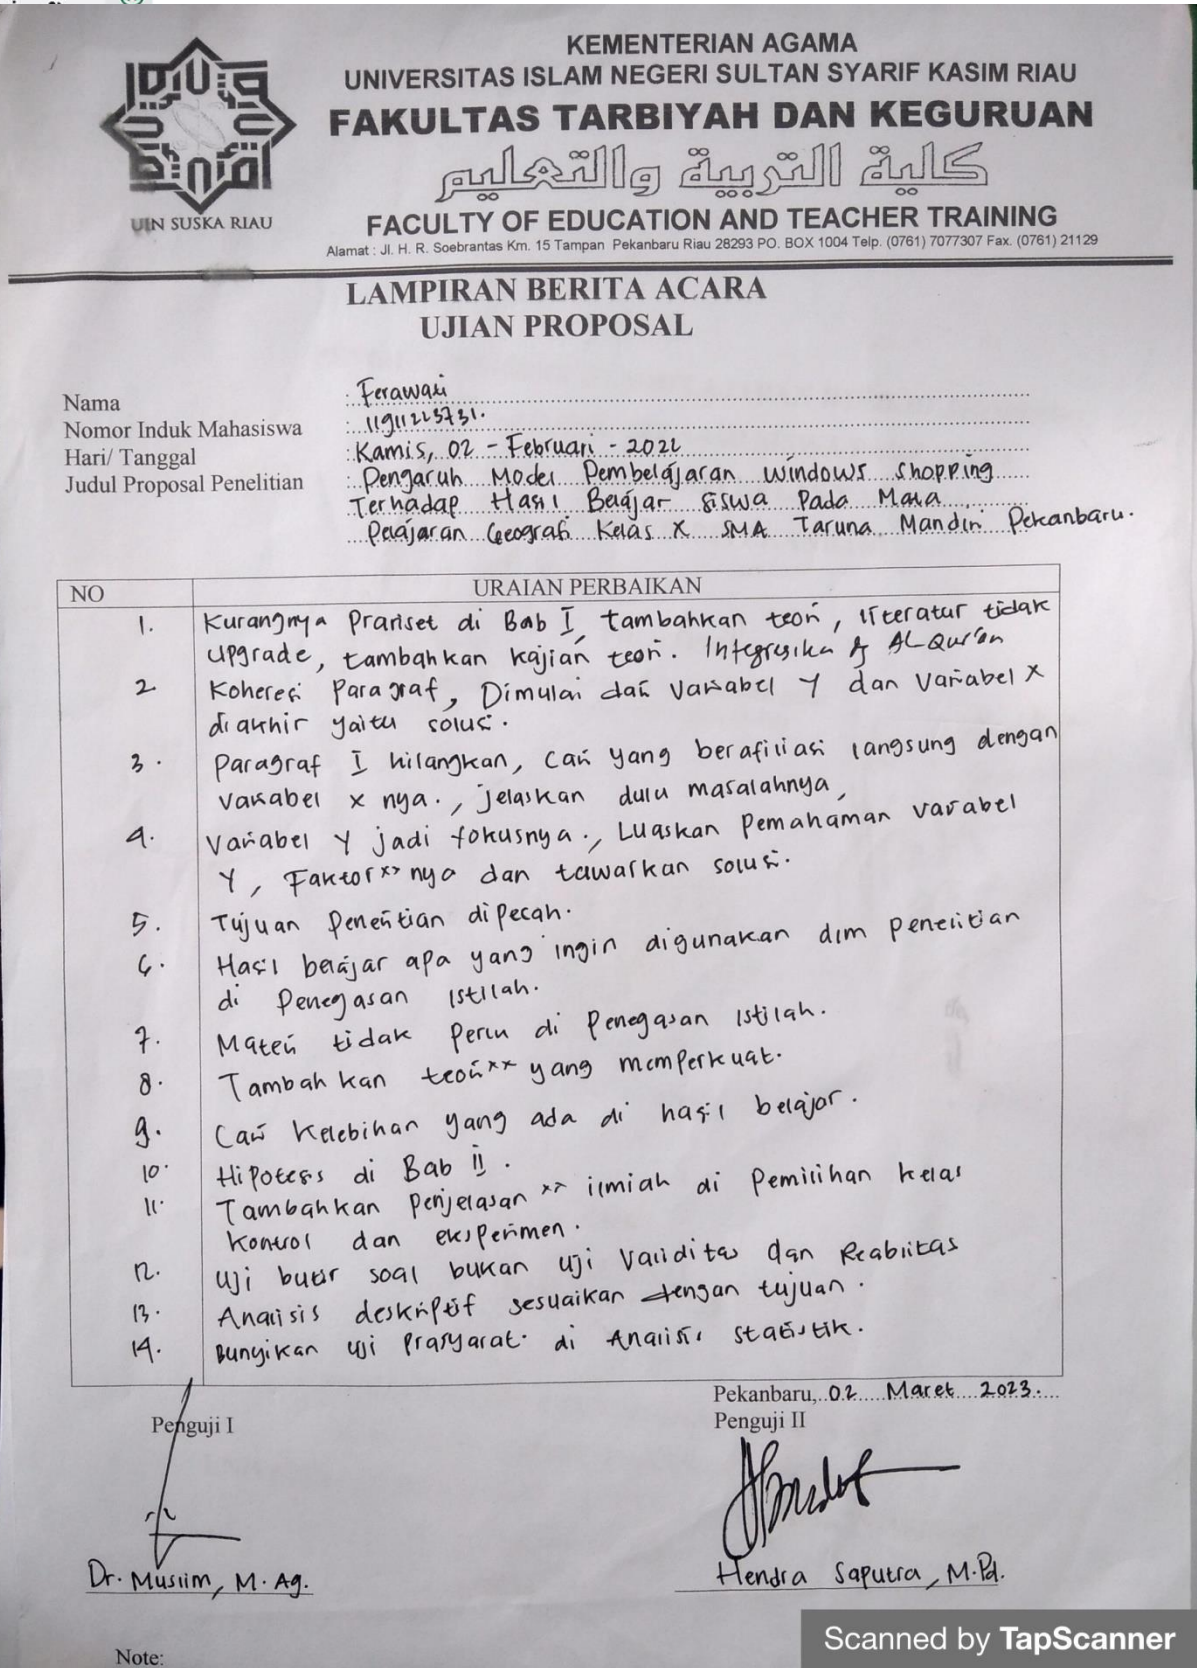 KEMENTERIAN AGAMA
UNIVERSITAS ISLAM NEGERI SULTAN SYARIF KASIM RIAU
FAKULTAS TARBIYAH DAN KEGURUAN
كلية التربية والتعليم
FACULTY OF EDUCATION AND TEACHER TRAINING
Alamat : Jl. H. R. Soebrantas Km. 15 Tampan Pekanbaru Riau 28293 PO. BOX 1004 Telp. (0761) 7077307 Fax. (0761) 21129
UIN SUSKA RIAU
LAMPIRAN BERITA ACARA
UJIAN PROPOSAL
Nama : Ferawati
Nomor Induk Mahasiswa : 11911223731.
Hari/ Tanggal : Kamis, 02 - Februari - 2022
Judul Proposal Penelitian : Pengaruh Model Pembelajaran Windows shopping
Terhadap Hasil Belajar Siswa Pada Mata
Pelajaran Geografi Kelas X SMA Taruna Mandiri Pekanbaru.
NO URAIAN PERBAIKAN
1. Kurangnya Prariset di Bab I, tambahkan teori, literatur tidak
upgrade, tambahkan kajian teori. Integrasika Al-Qur'an
2. Koheresi Paragraf, Dimulai dari Variabel Y dan Variabel X
diakhir yaitu solusi.
3. Paragraf I hilangkan, Cari yang berafiliasi langsung dengan
Variabel x nya., jelaskan dulu masalahnya,
4. Variabel Y jadi fokusnya., Luaskan Pemahaman varabel
Y, Faktor** nya dan tawarkan solusi.
5. Tujuan Penelitian dipecah.
6. Hasil belajar apa yang ingin digunakan dlm Penelitian
di Penegasan Istilah.
7. Materi tidak Perlu di Penegasan Istilah.
8. Tambah kan teori** yang memperkuat.
9. Cari Kelebihan yang ada di hasil belajar.
10. Hipotesis di Bab II.
11. Tambahkan Penjelasan ** ilmiah di Pemilihan kelas
Kontrol dan eksperimen.
12. Uji butir soal bukan Uji Validitas dan Reabilitas
13. Analisis deskriptif sesuaikan dengan tujuan.
14. Bunyikan uji Prasyarat di Analisis Statistik.
Pekanbaru, 02 Maret 2023.
Penguji I Penguji II
Dr. Muslim, M. Ag. Hendra Saputra, M.Pd.
Note:
Scanned by TapScanner